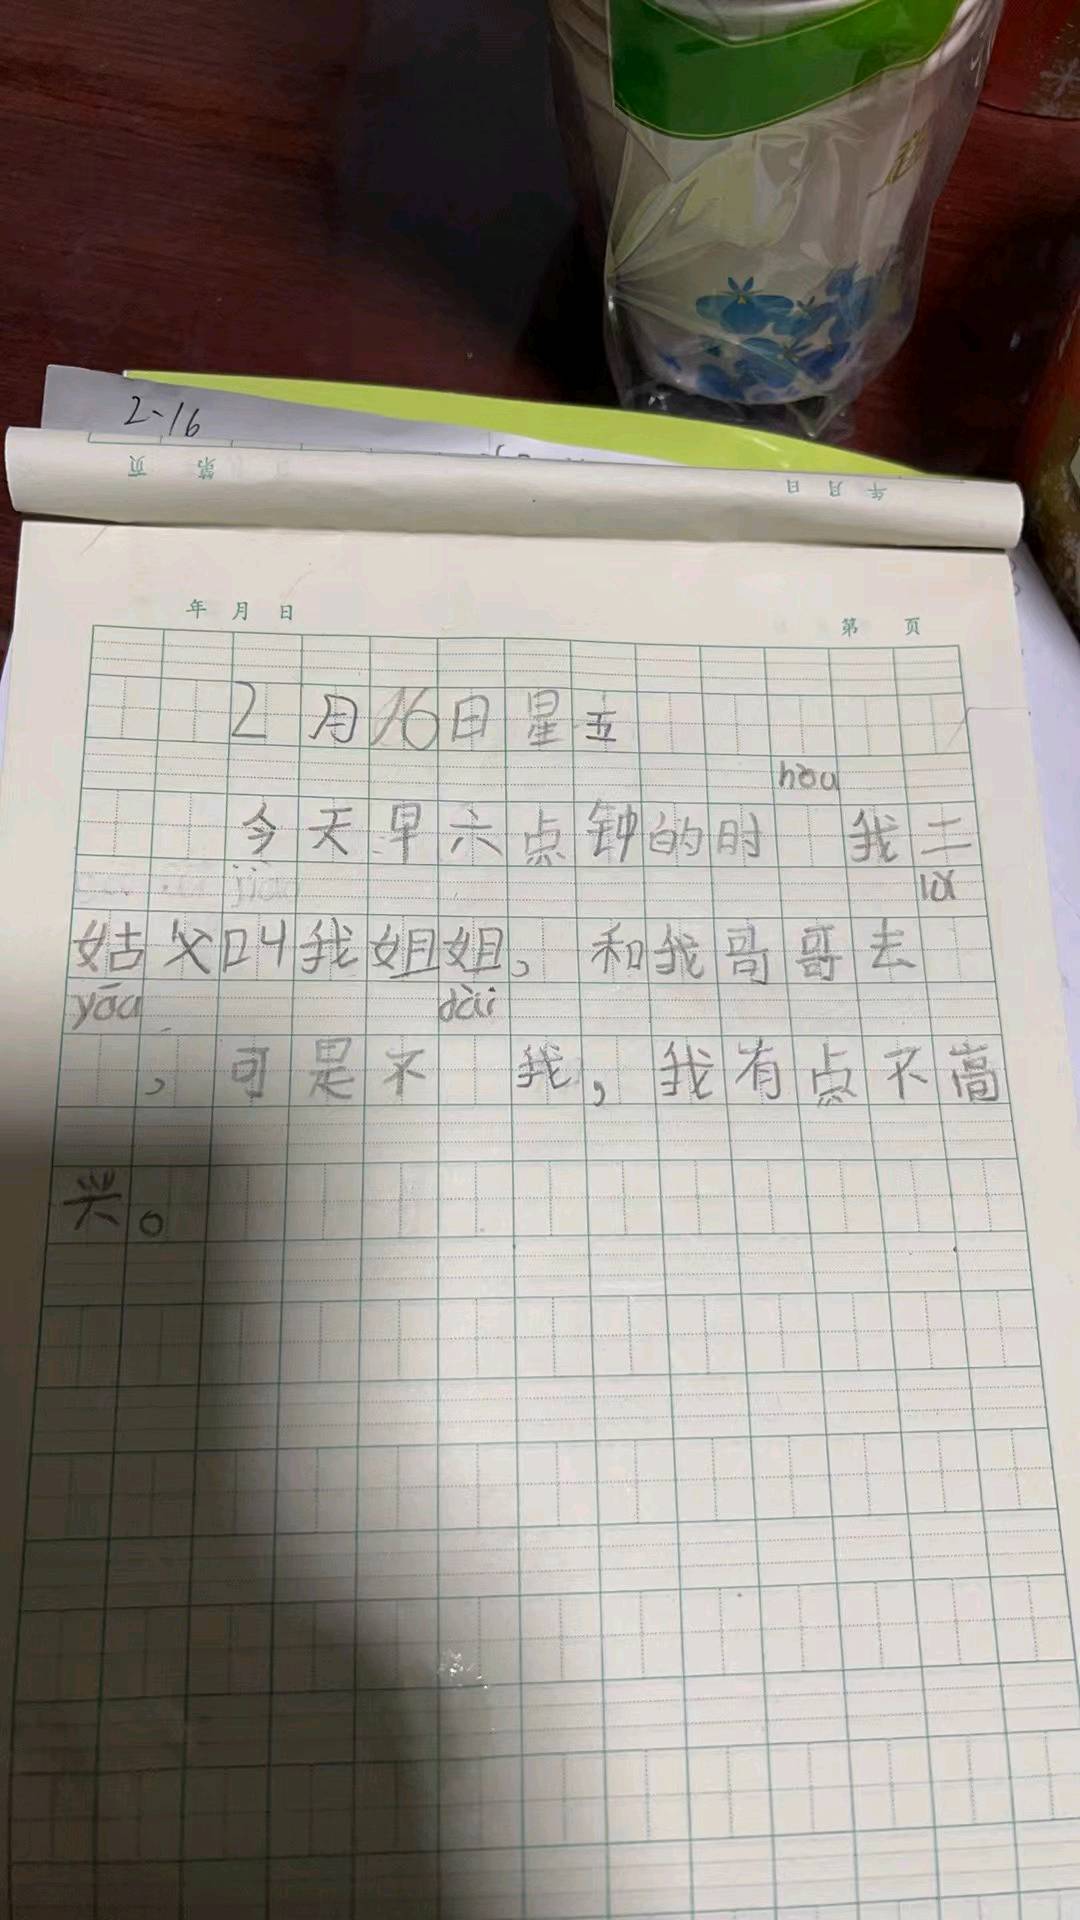 2-16
页 第
日 月 年
年 月 日
第 页
2月16日星五
hòu
今天早六点钟的时 我二
jiào
lǚ
姑父叫我姐姐，和我哥哥去
yóu dài
，可是不 我，我有点不高
兴。